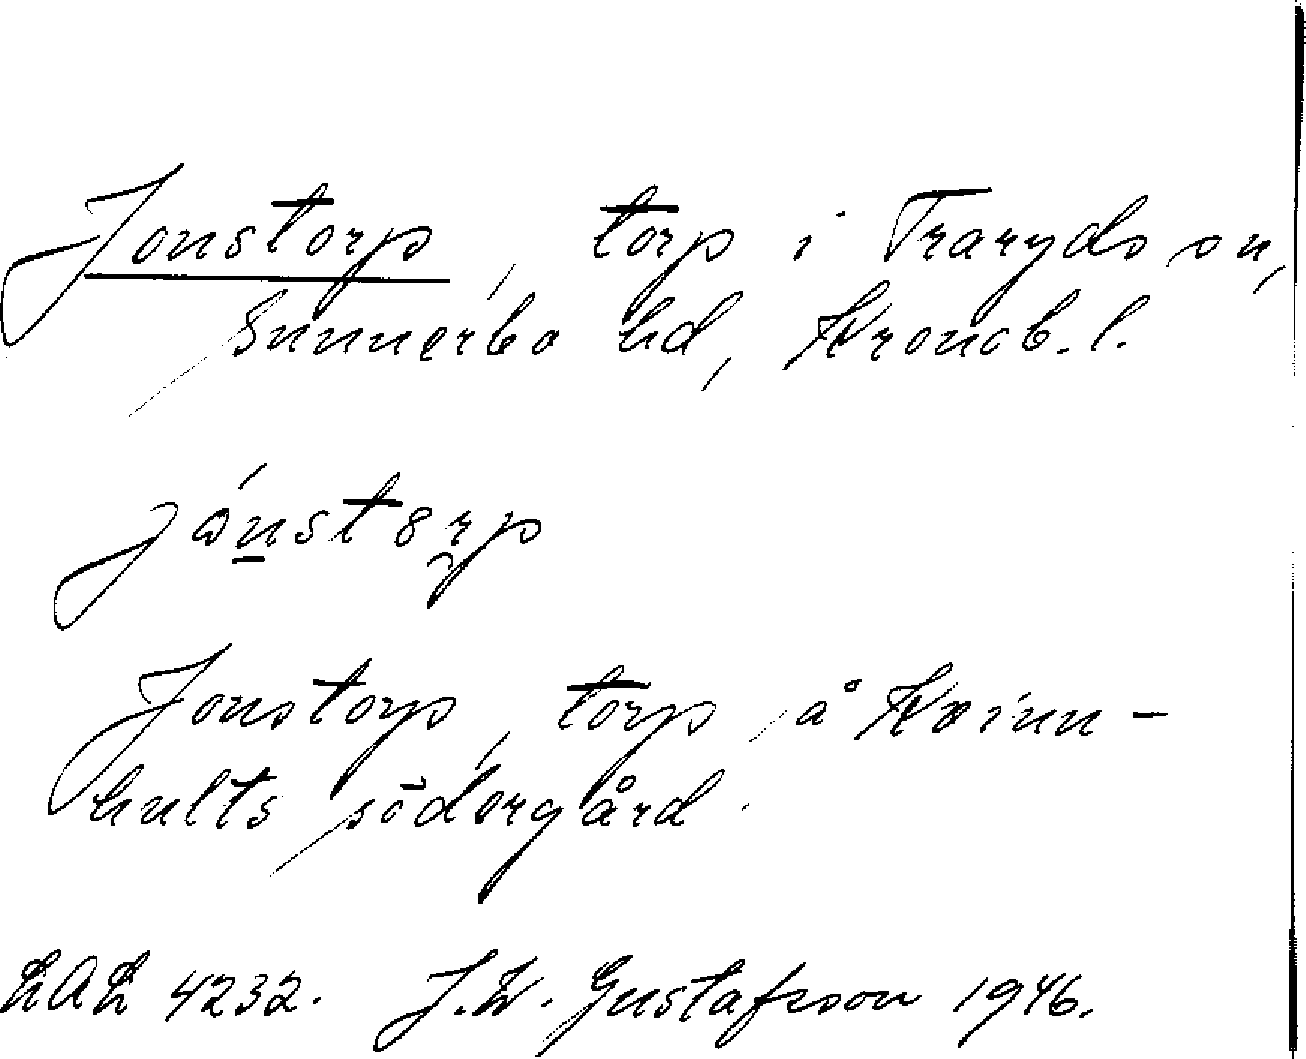 Jonstorp, torp i Traryds sn,
Sunnerbo hd, Kronob. l.
jónstorp
Jonstorp, torp å Kvinn-
hults södergård.
LAL 4232. J. W. Gustafsson 1946.